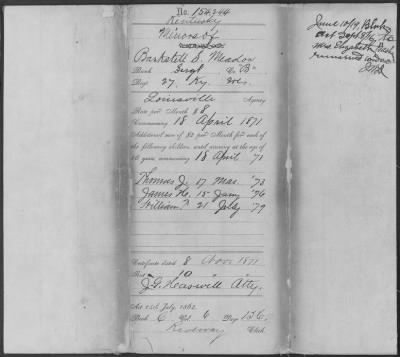 No. 154,244
Kentucky
Minors of
Barkstell S. Meador
Rank Sergt. Co "B"
Regt 27 Ky. Vols.
Louisville Agency
Rate per Month $8
Commencing 18 April 1871
Additional sum of $2 per Month for each of
the following children, until arriving at the age of
16 years, commencing 18 April '71
Thomas J. 17 Mar. '73
James H. 15 Jany '76
William 21 July '79
Certificate dated 8 Nov. 1871
10 " "
J.G. Atty.
Act 14th July, 1862.
Book 6 Vol. 6 Page 136.
Ridgway Clerk.
June 10/19,
Act Sept 8/16,
Mrs. Elizabeth
remarried widow